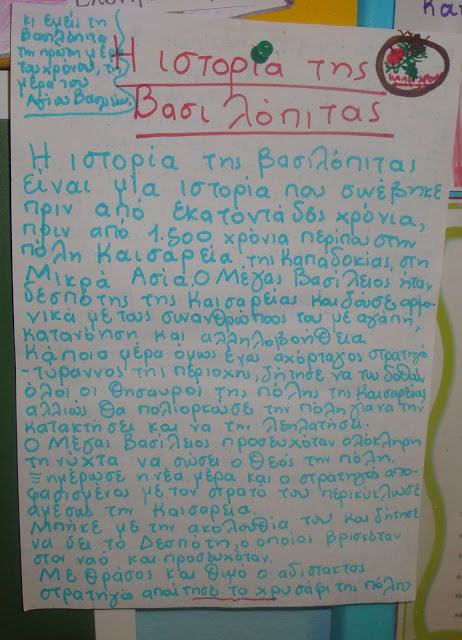 κι εμείς τη
Βασιλόπιτα
την πρώτη μέρα
του χρόνου, τη
μέρα του
Αγίου Βασιλείου.
Η ιστορία της
Βασιλόπιτας
Η ιστορία της βασιλόπιτας
είναι μία ιστορία που συνέβηκε
πριν από εκατοντάδες χρόνια,
πριν από 1.500 χρόνια περίπου στην
πόλη Καισαρεία της Καπαδοκίας, στη
Μικρά Ασία. Ο Μέγας Βασίλειος ήταν
δεσπότης της Καισαρείας και ζούσε αρμο-
νικά με τους συνανθρώπους του με αγάπη,
κατανόηση και αλληλοβοήθεια.
Κάποια μέρα όμως ένας αχόρταγος στρατηγός
-τύραννος της περιοχής, ζήτησε να του δοθούν
όλοι οι θησαυροί της πόλης της Καισαρείας
αλλιώς θα πολιορκούσε την πόλη για να την
κατακτήσει και να την λεηλατήσει.
Ο Μέγας Βασίλειος προσευχόταν ολόκληρη
τη νύχτα να σώσει ο Θεός την πόλη.
Ξημέρωσε η νέα μέρα και ο στρατηγός απο-
φασισμένος με τον στρατό του περικύκλωσε
αμέσως την Καισαρεία.
Μπήκε με την ακολουθία του και ζήτησε
να δει το Δεσπότη, ο οποίος βρισκόταν
στον ναό και προσευχόταν.
Με θράσος και θυμό ο αδίστακτος
στρατηγός απαίτησε το χρυσάφι της πόλης